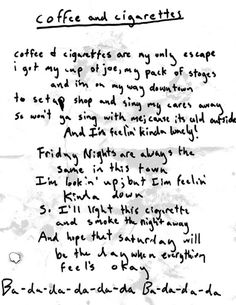 coffee and cigarettes
coffee & cigarettes are my only escape
i got my cup of joe, my pack of stoges
and i'm on my way downtown
to setup shop and sing my cares away
so won't ya sing with me, cause its cold outside
And I'm feelin' kinda lonely!
Friday Nights are always the
same in this town
I'm lookin' up; but I'm feelin'
Kinda down
So I'll light this cigarette
and smoke the night away
And hope that saturday will
be the day when everything
feel's okay
Ba-da-da-da-da-da Ba-da-da-da